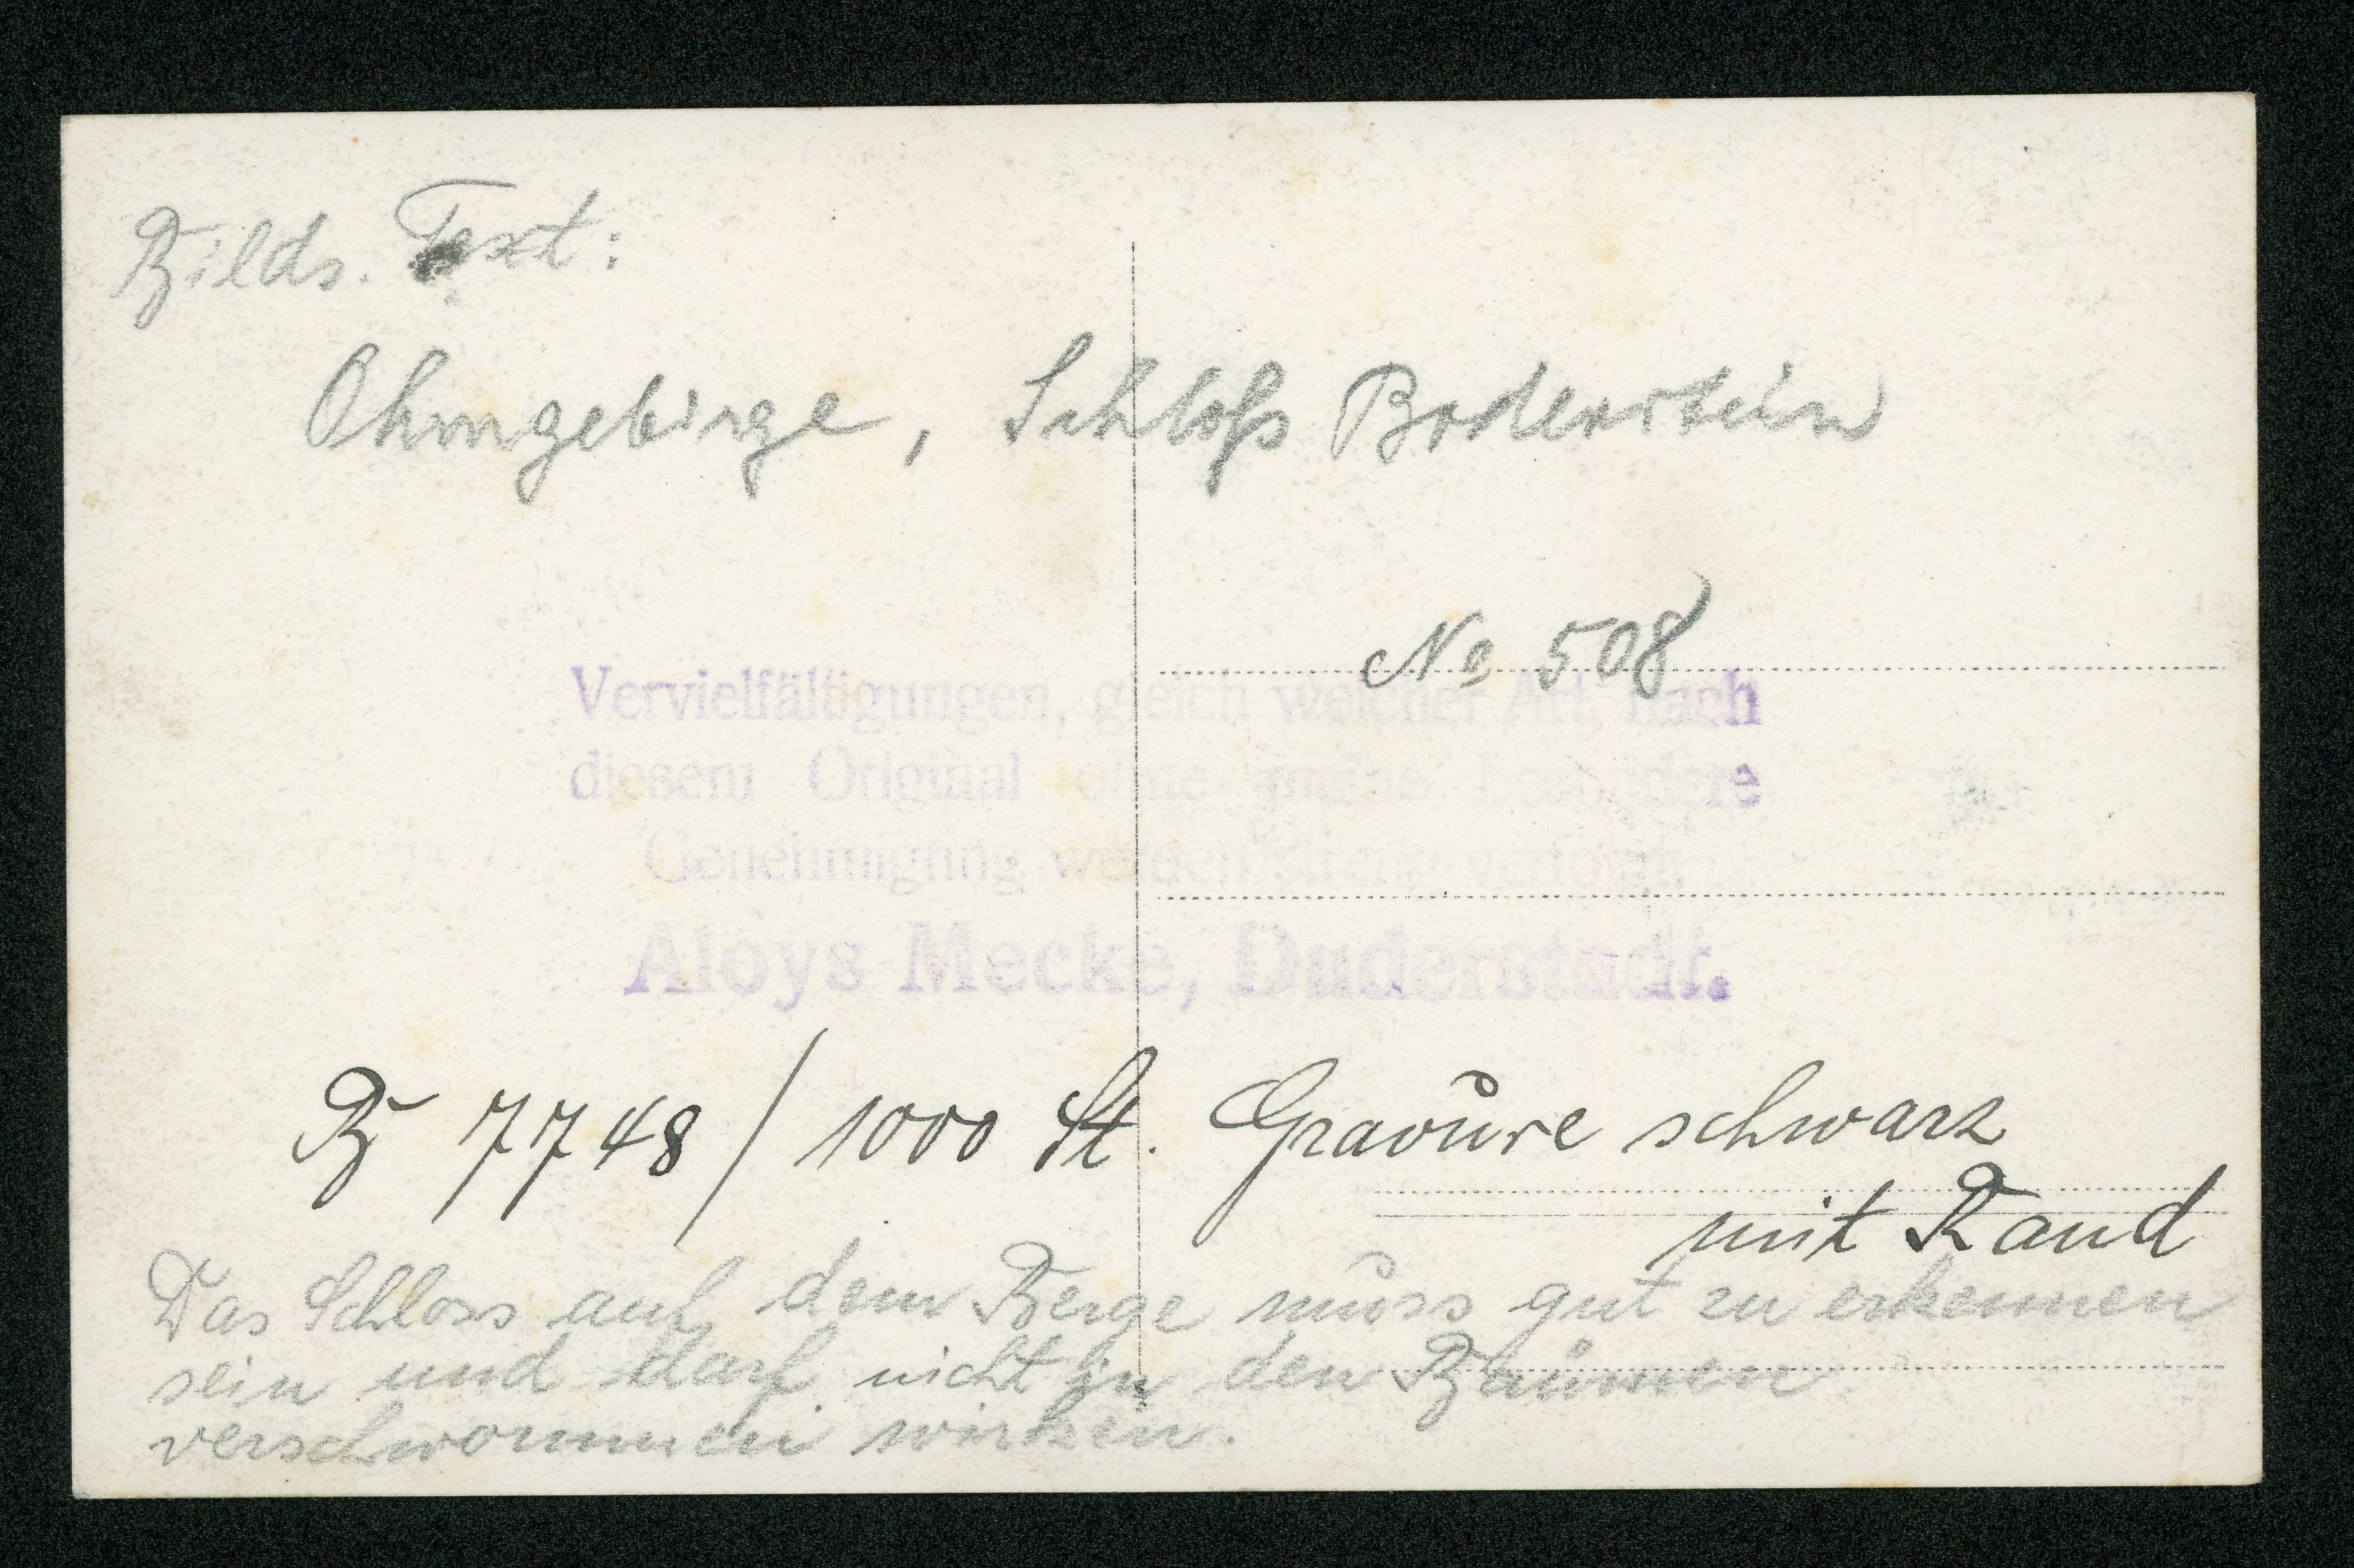 Bilds. Text:
Ohmgebirge, Schloß Bodenstein
No 508
Vervielfältigungen, gleich welcher Art, nach
diesem Original ohne meine besondere
Genehmigung werden streng verfolgt.
Aloys Mecke, Duderstadt.
B 7748 / 1000 St. Gravure schwarz
mit Rand
Das Schloss auf dem Berge muss gut zu erkennen
sein und darf nicht in den Bäumen
verschwommen wirken.